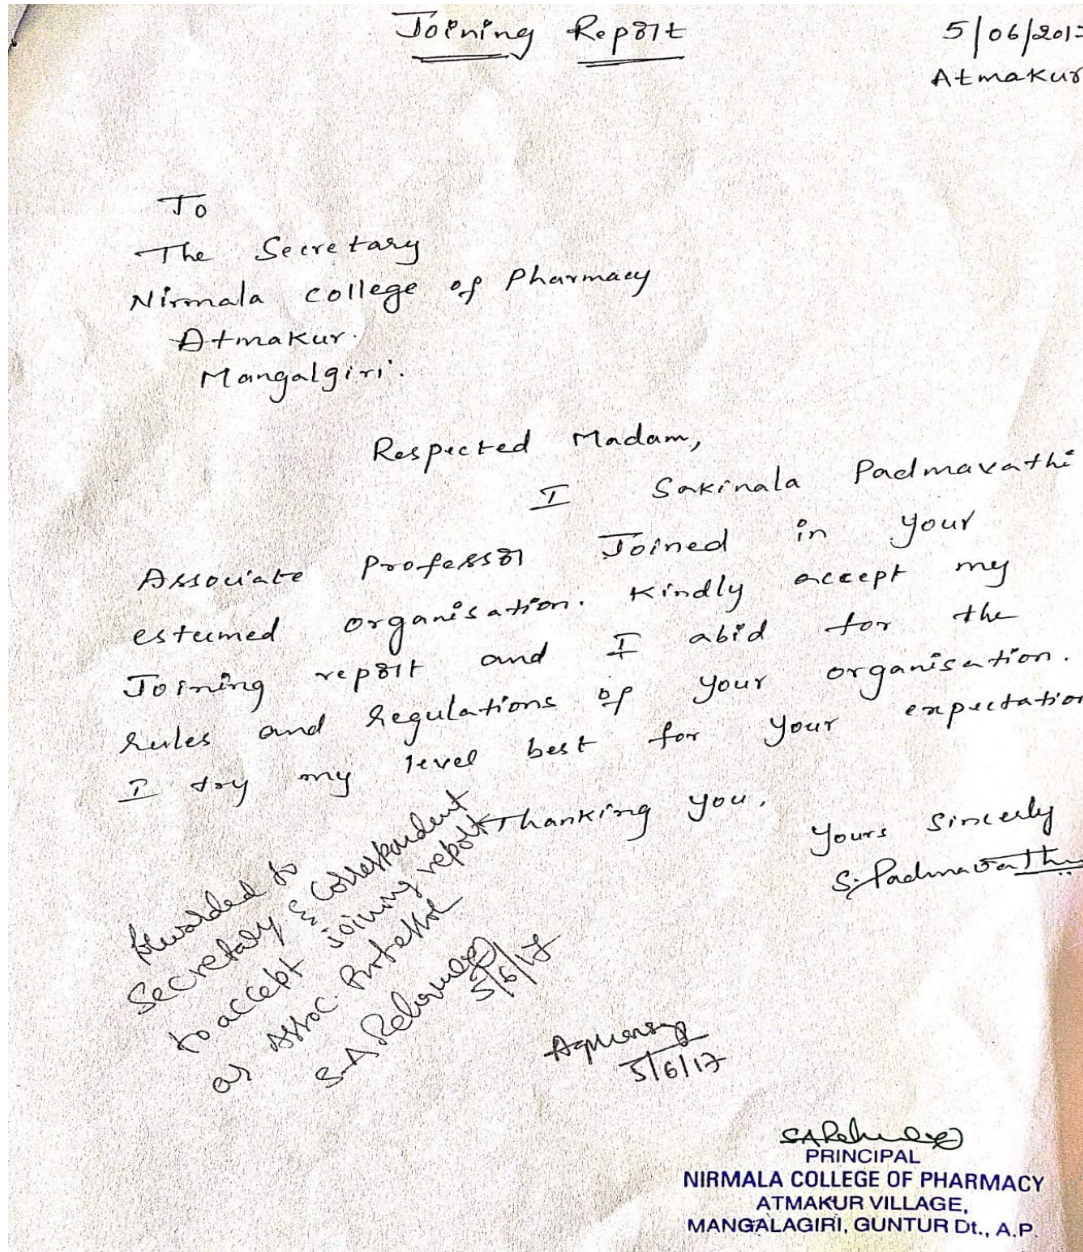 Joining Report
5/06/201
Atmakur
To
The Secretary
Nirmala college of Pharmacy
Atmakur.
Mangalgiri.
Respected Madam,
I Sakinala Padmavathi
Associate Professor Joined in your
esteemed organisation. Kindly accept my
Joining report and I abid for the
rules and regulations of your organisation.
I try my level best for your expectation
Thanking you.
Yours Sincerly
S. Padmavathi
forwarded to
Secretary & Correspondent
to accept joining report
as Assoc Professor
5/6/17
5/6/17
PRINCIPAL
NIRMALA COLLEGE OF PHARMACY
ATMAKUR VILLAGE,
MANGALAGIRI, GUNTUR Dt., A.P.